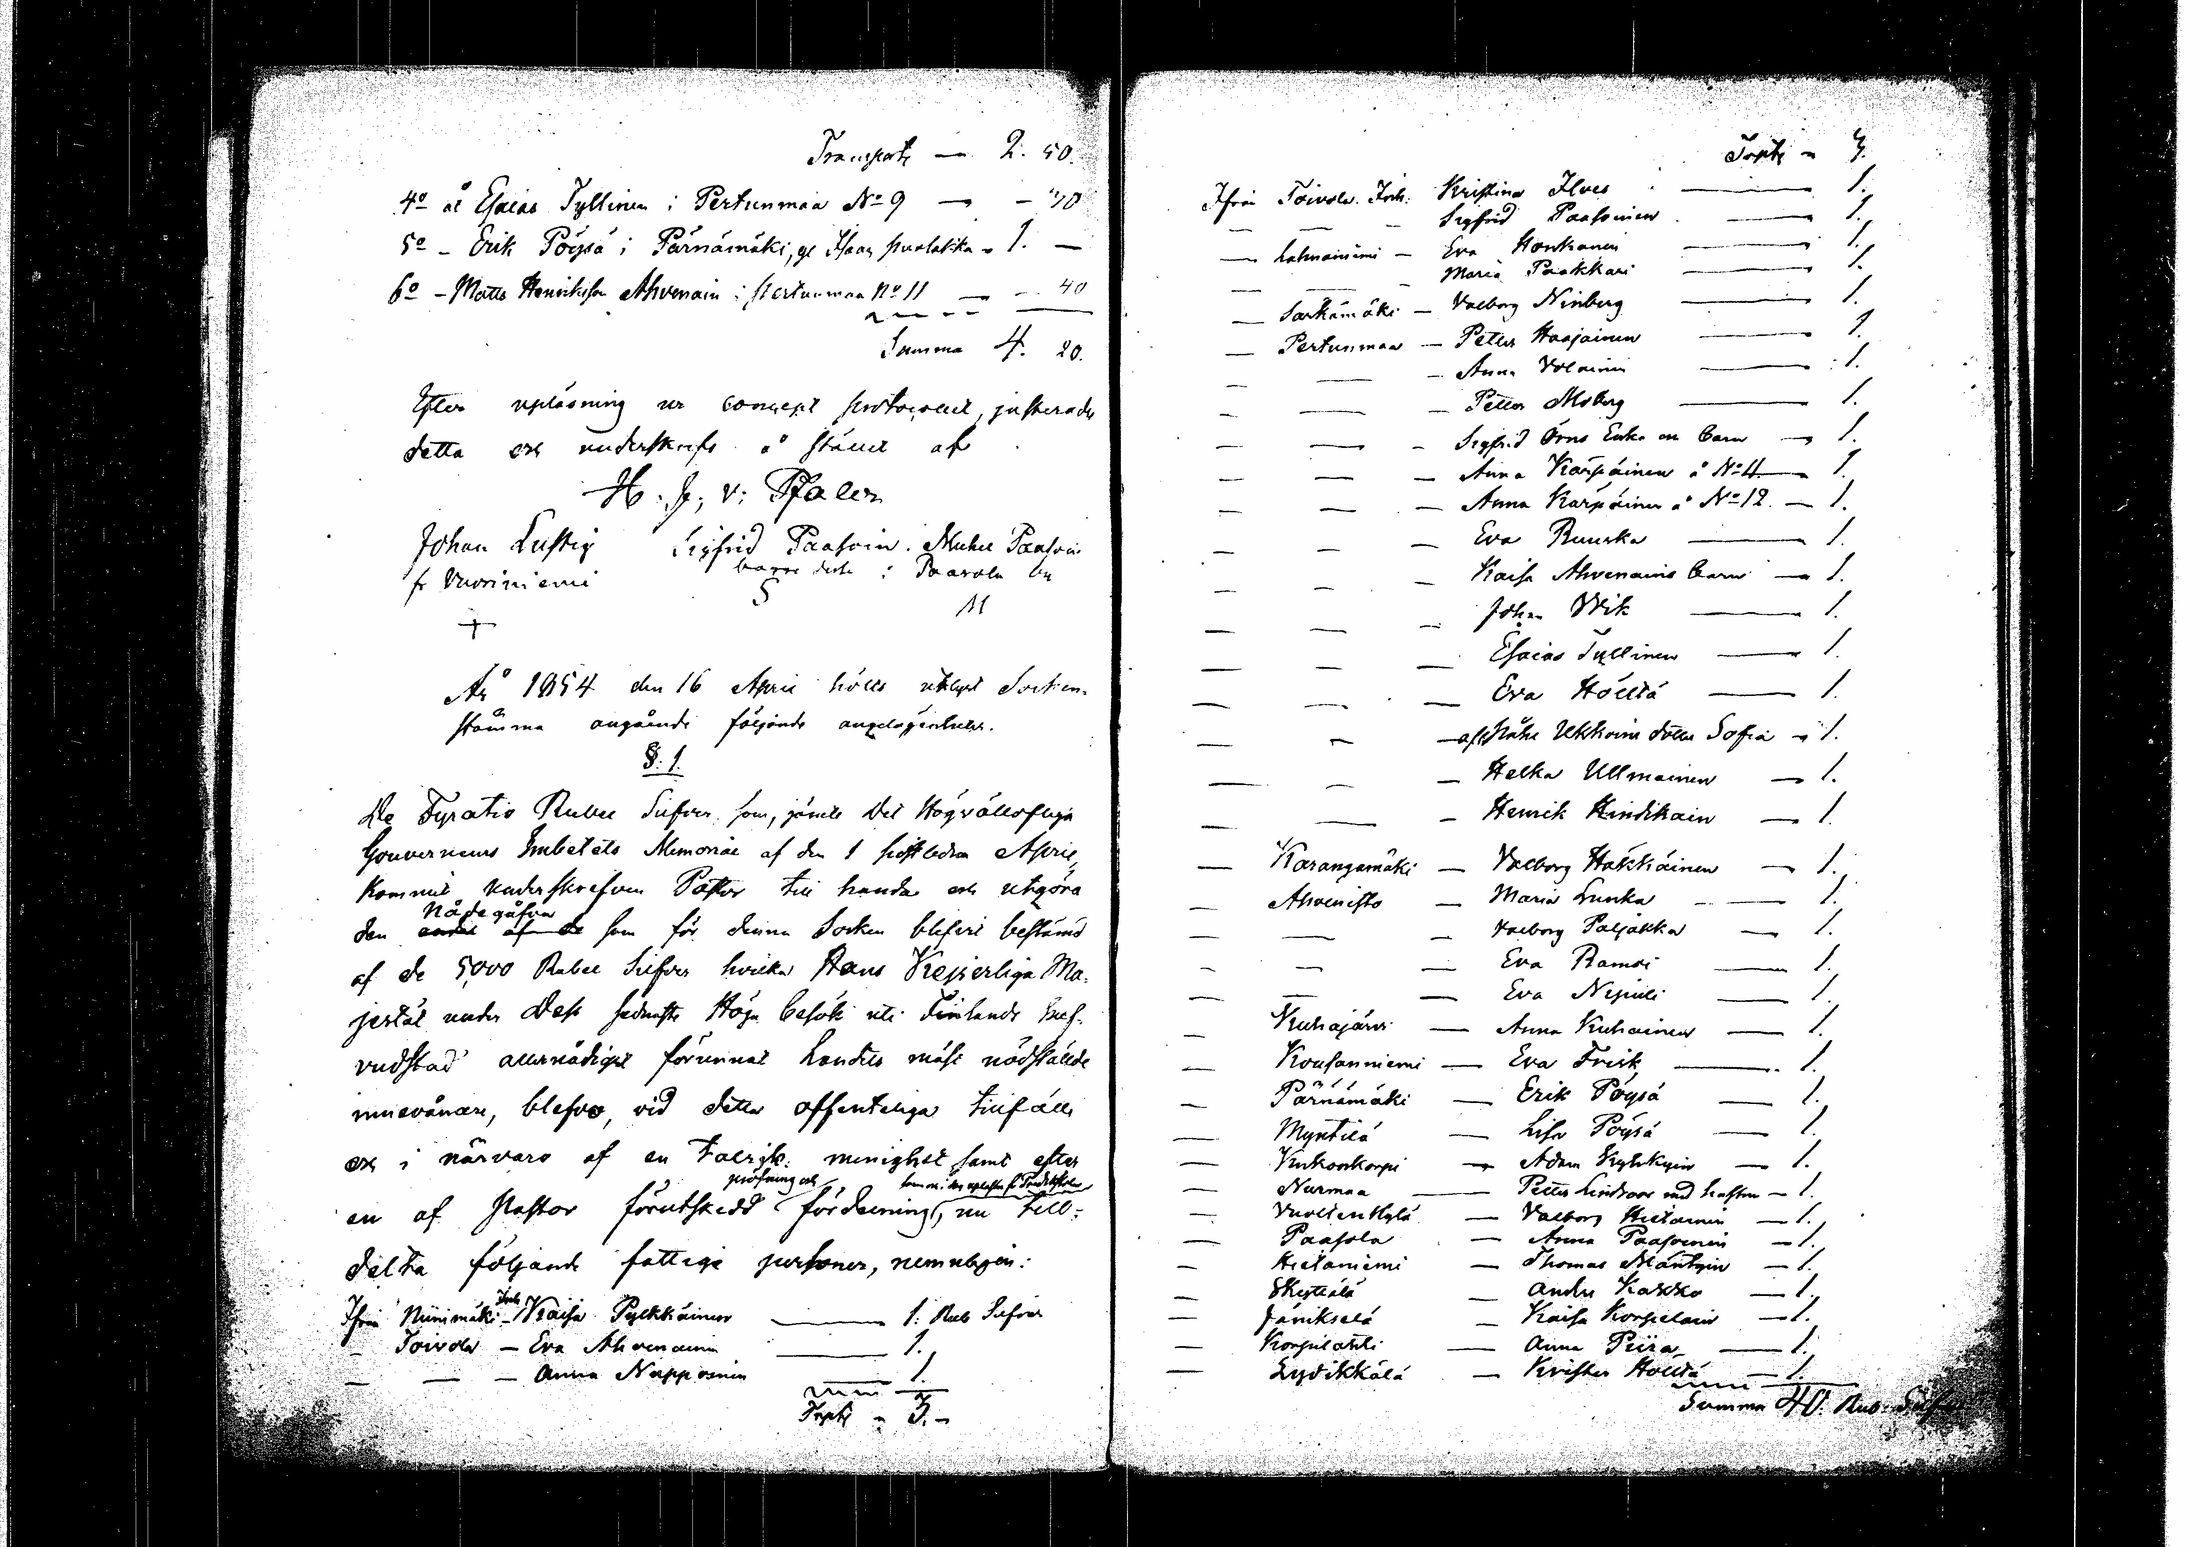 Transport — 2. 50.
4o åt Esaias Tyllinen i Pertunmaa No 9 — - " 30
5o - Erik Pöysä i Pärnämäki, gl Isaas Puolakka - 1. —
6o - Matts Henriksson Ahvenain i Pertunmaa No 11 — - 40
Summa 4. 20.
Efter upläsning ur concept protocollet, justerades
detta och underskrefs å stället af
H. J. v: Pfaler
Johan Lustig Sigfrid Paasoin. Michel Paasoin
fr Vuoriniemi i Paasola by
S M
+
År 1854 den 16 April hölls utlyst Socken-
stämma angående följande angelägenheter.
§. 1.
De Fyratio Rubel Silfver som, jämte Det Högvällofliga
Gouverneurs Embetets Memorial af den 1 sistledne April,
kommit underskrefven Pastor till handa och utgöra
den Nådegåfva som för denna Socken blifvit bestämd
af de 5,000 Rubel Silfver hvilka Hans Kejserliga Ma-
jestät under Dess sednaste Höga besök uti Finlands huf-
vudstad allernådigst förunnat Landets mäst nödstälde
innevånare, blefvo, vid detta offenteliga tillfälle
och i närvaro af en talrik menighet samt efter
pröfning och
en af Pastor förutskedd fördelning, nu till-
delta följande fattige personer, nemnligen:
Ifrån Niinimäki Inh. Kaisa Pylkkäinen — 1. Rub Silfver
- Toivola — Eva Ahvenainen — 1.
— — — Anna Nupponen — 1
Trpt - 3. -
Trpt - 3.
Ifrån Toivola. Inh. Kristina Ilves — 1.
— — — Sigfrid Paasoinen — 1.
— Lahnaniemi — Eva Honkanen — 1.
— — - Maria Paakkari — 1.
— Sarkamäki — Valborg Ninberg — 1.
— Pertunmaa — Petter Haajainen — 1.
— — — Anna Volainen — 1.
— — — Petter Moberg — 1.
— — - Sigfrid Örns Enka och barn — 1.
— — — Anna Karpäinen å No 4 — 1.
— — — Anna Karpäinen å No 12. — 1.
— — — Eva Ruuska — 1.
— — — Kaisa Ahvenains barn — 1.
— — — Johan Wik — 1.
— — — Esaias Tyllinen — 1.
— — — Eva Hölttä — 1.
— — — Ukkoins dotter Sofia — 1.
— — — Helka Ullmainen — 1.
— — - Henrik Hindikain — 1.
— Karangamäki — Valborg Hakkäinen — 1.
— Ahvenisto — Maria Lunka — 1.
— — — Valborg Paljakka — 1.
- — — Eva Ramoi — 1.
— — — Eva Nipuli — 1.
— Kuhajärvi — Anna Kuhainen — 1.
— Koufanniemi — Eva Frisk — 1.
— Pärnämäki — Erik Pöysä — 1.
— Myntilä — Lisa Pöysä — 1.
— Kukonkorpi — Adam Kyhkyin — 1.
— Nurmaa — Petter Lindroos med hustru — 1.
— Vuoltenkylä — Valborg Hietainen — 1.
— Paasola — Anna Paasoinen — 1.
— Hietaniemi — Thomas Mäntyin — 1.
— Skyttälä — Anders Kakko — 1.
— Jänikselä — Kaisa Korpelain — 1.
— Korpilahti — Anna Piira — 1.
— Lydikkälä — Krister Hölttä — 1.
Summa 40. Rub. Silfver